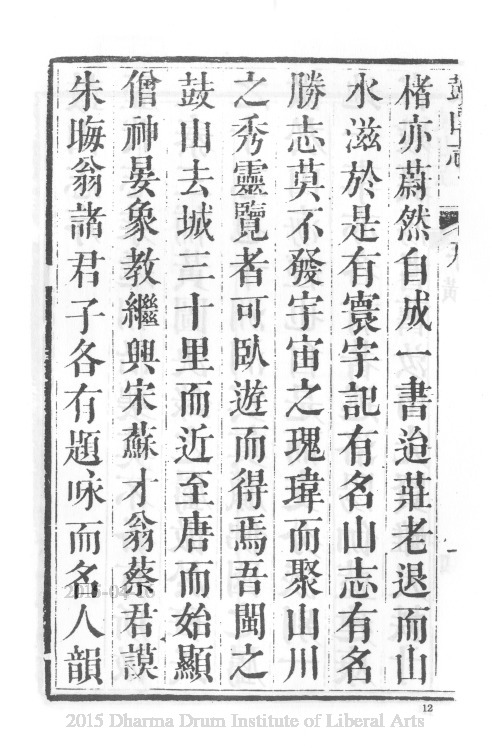 鼓山志
楮亦蔚然自成一書迨莊老退而山
水滋於是有寰宇記有名山志有名
勝志莫不發宇宙之瑰瑋而聚山川
之秀靈覽者可臥遊而得焉吾閩之
鼓山去城三十里而近至唐而始顯
僧神晏象教繼興宋蘇才翁蔡君謨
朱晦翁諸君子各有題咏而名人韻
12
2015 Dharma Drum Institute of Liberal Arts